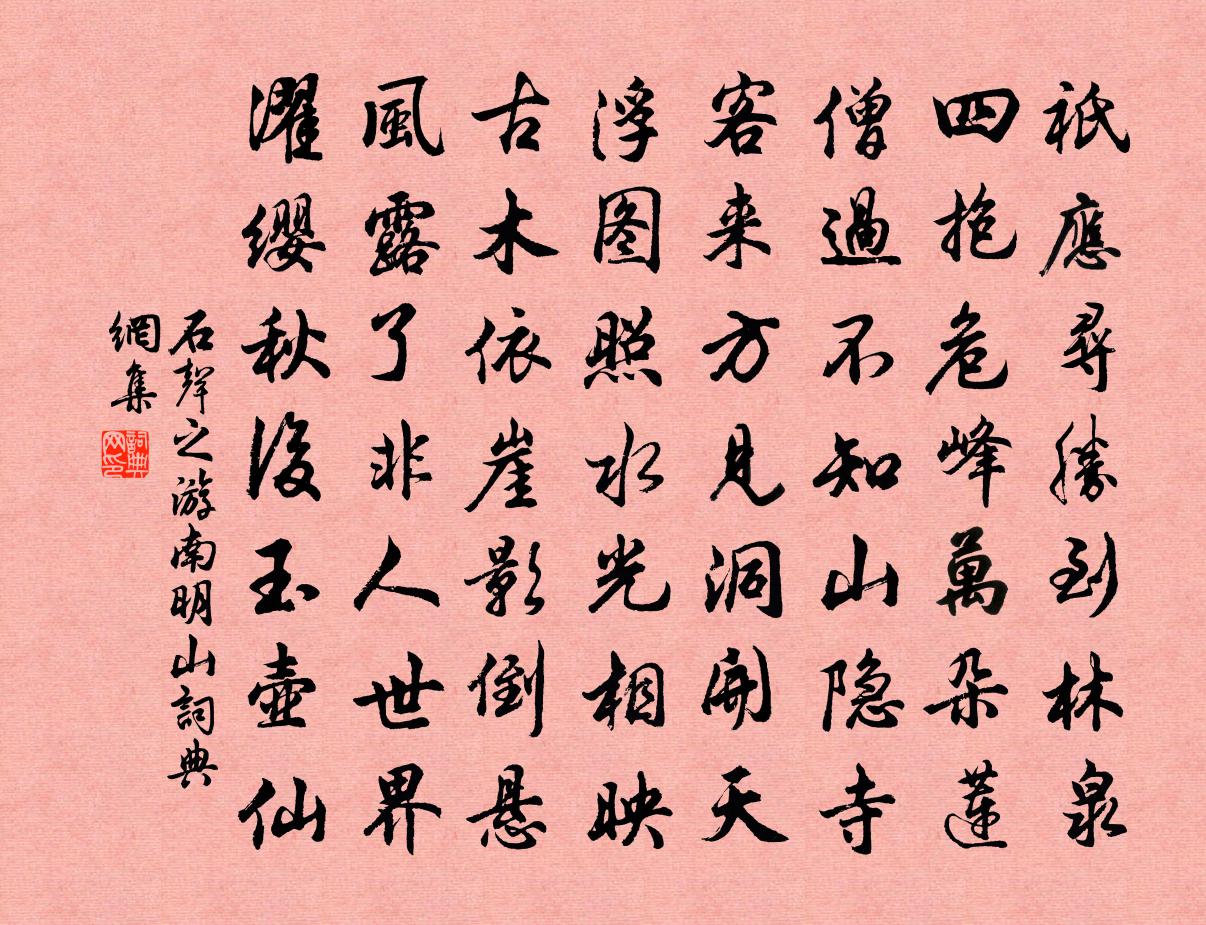 祇應尋勝到林泉
四抱危峰萬朵蓮
僧過不知山隐寺
客来方見洞開天
浮图照水光相映
古木依崖影倒悬
風露了非人世界
濯缨秋後玉壺仙
石聲之游南明山詞典
網集
詞典
网印